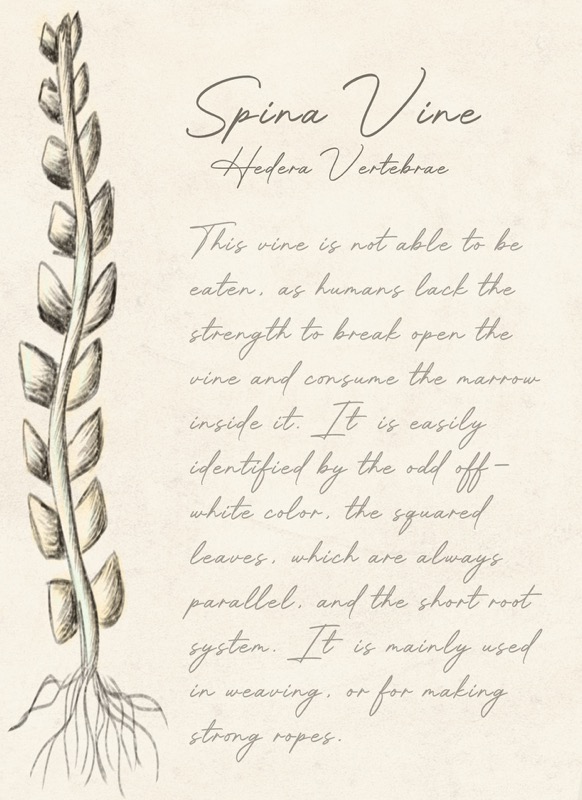 Spina Vine
Hedera Vertebrae
This vine is not able to be
eaten, as humans lack the
strength to break open the
vine and consume the marrow
inside it. It is easily
identified by the odd off-
white color, the squared
leaves, which are always
parallel, and the short root
system. It is mainly used
in weaving, or for making
strong ropes.